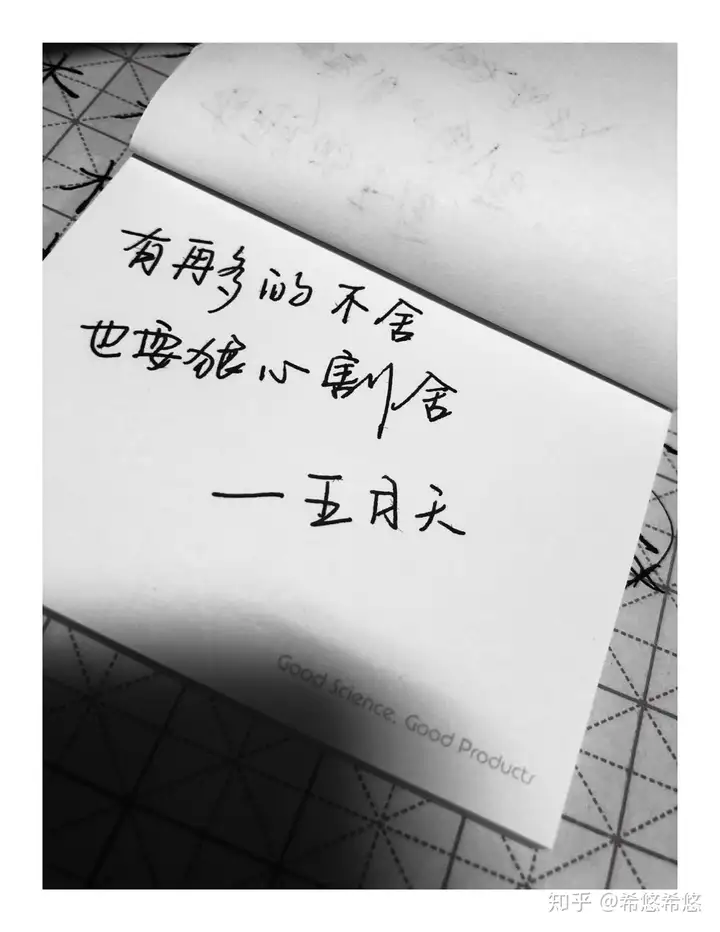 有再多的不舍
也要狠心割舍
——五月天
Good Science, Good Products
知乎 @希悠希悠